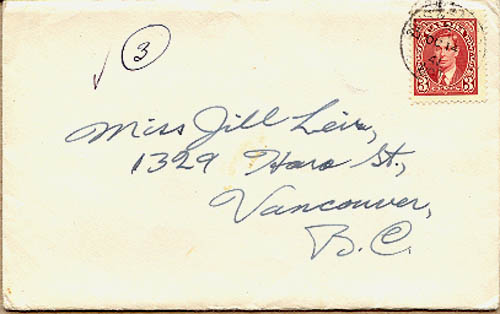 3
Miss Jill Leiv,
1329 Haro St.,
Vancouver,
B.C.
3 3